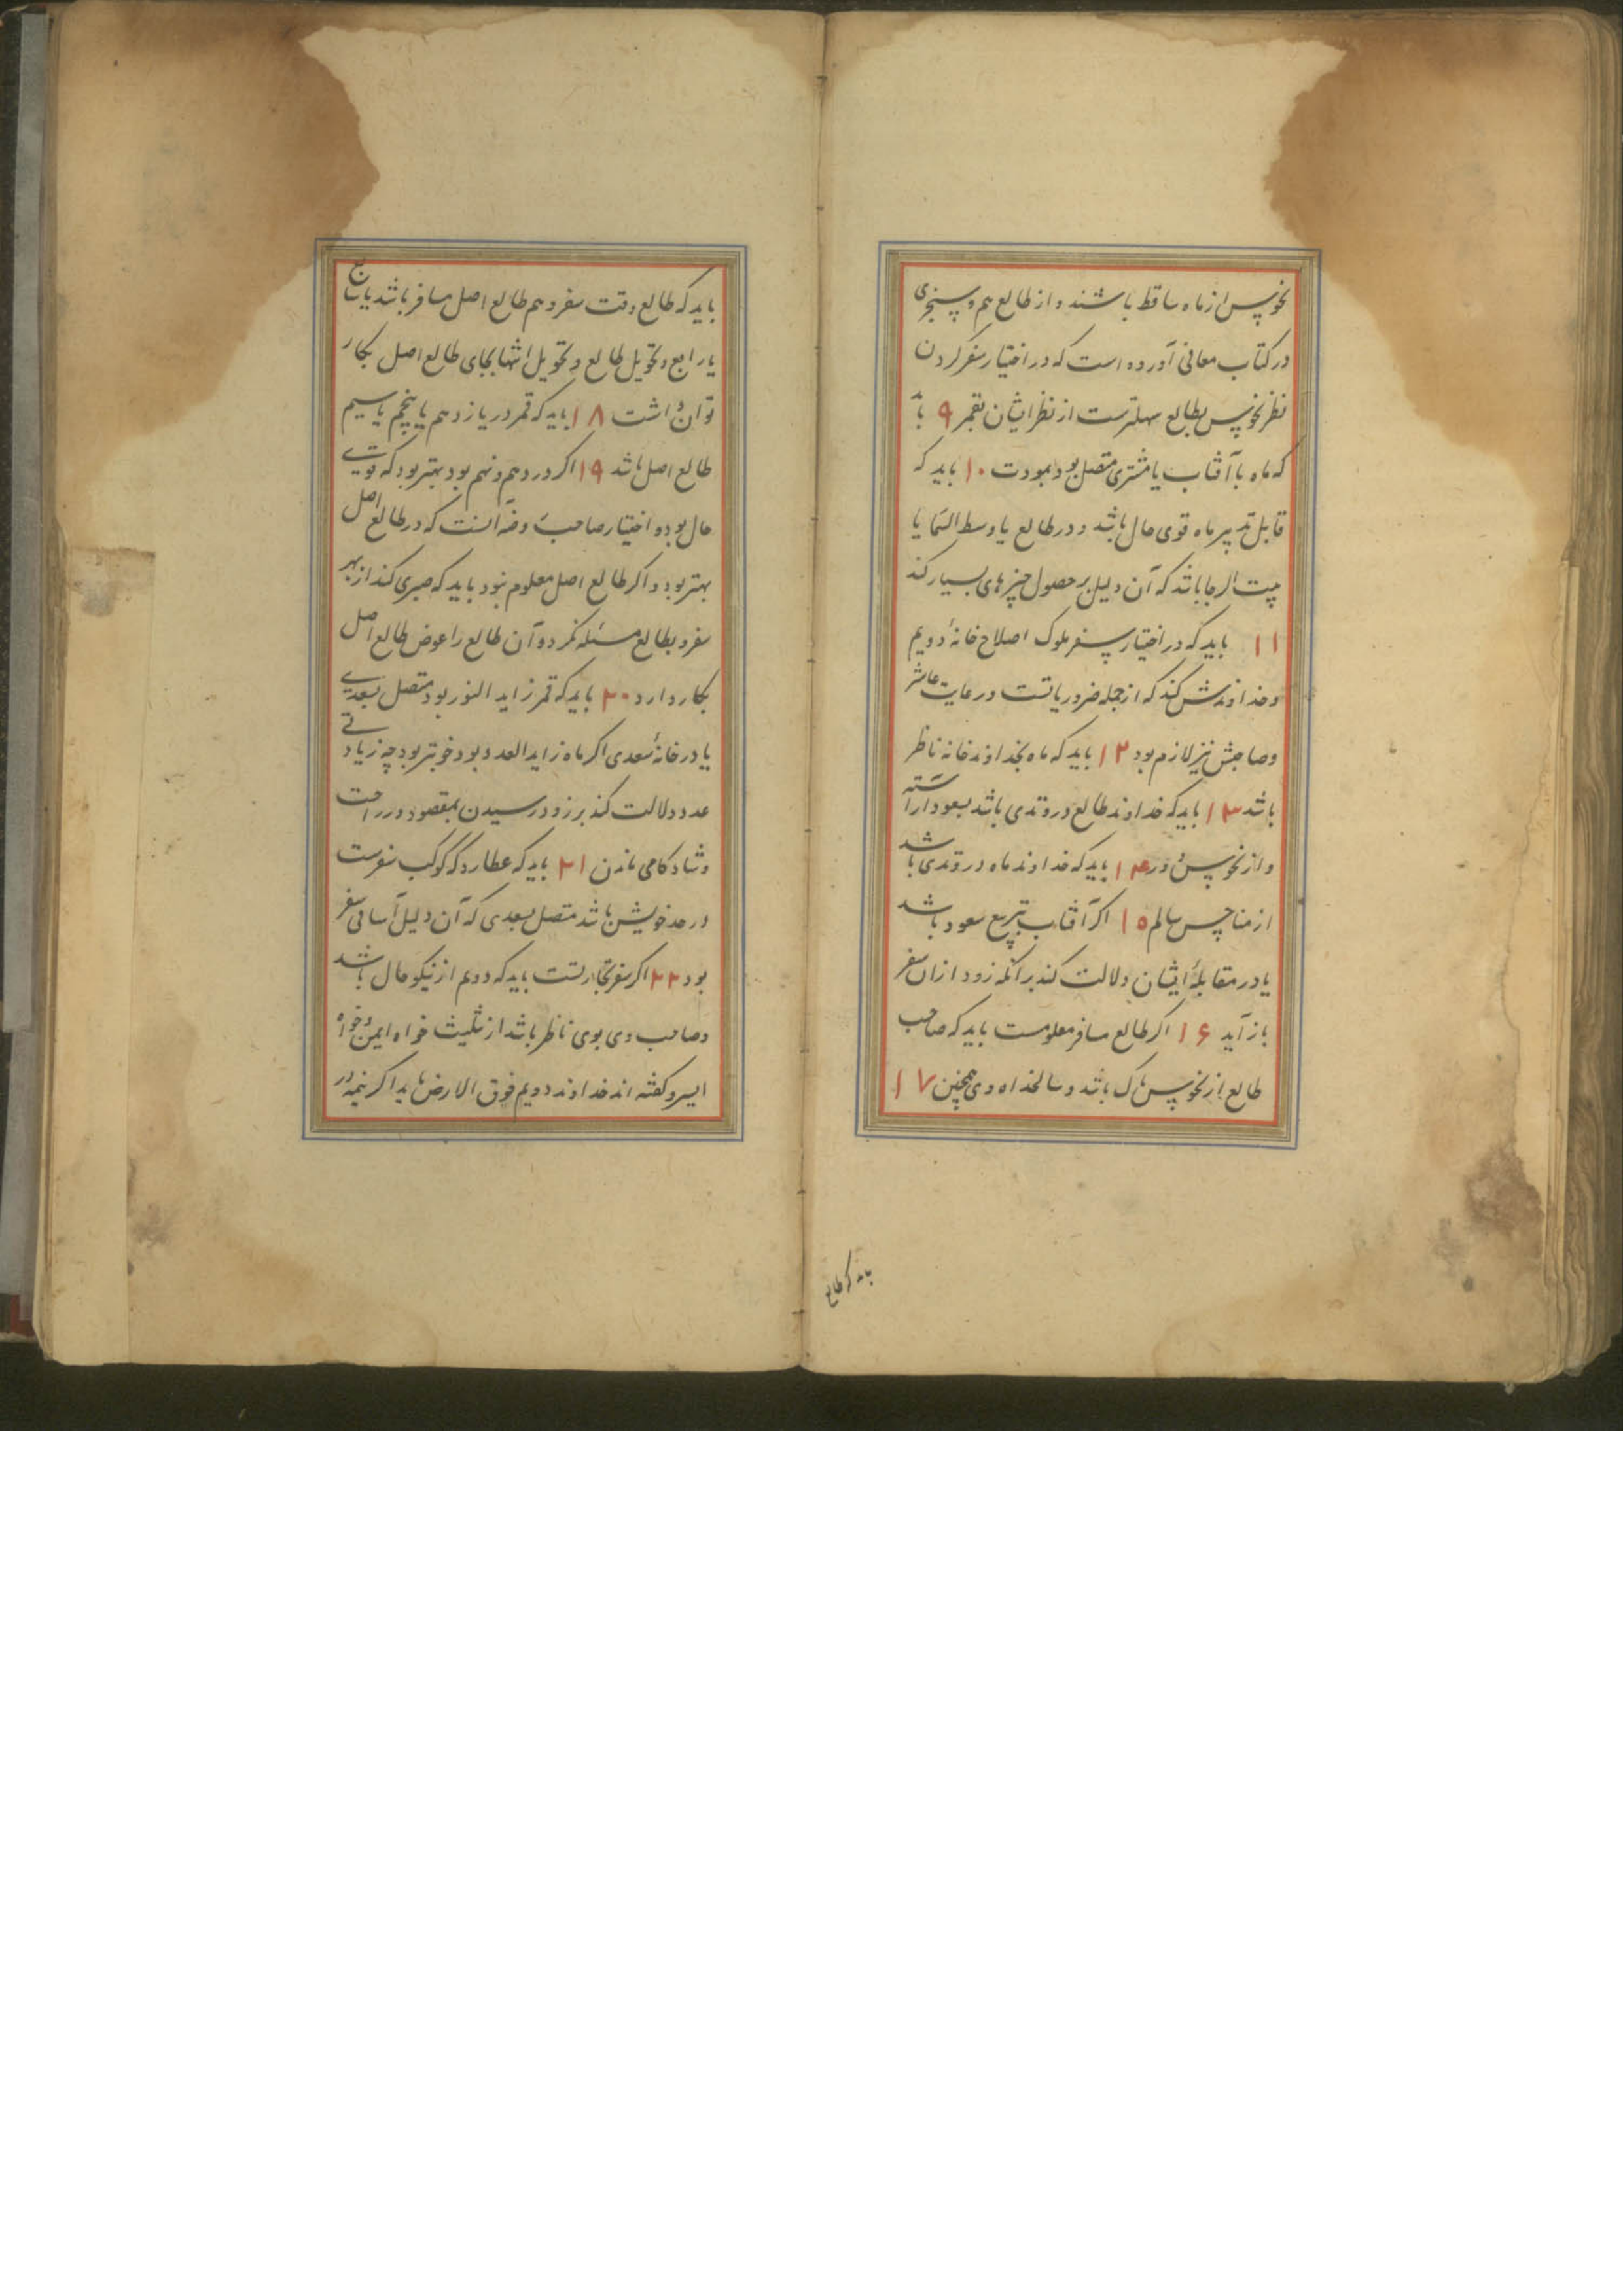 نحوس از ماه ساقط باشند و از طالع هم و سنجری
در کتاب معانی آورده است که در اختیار سفر کردن
نظر نحوس بطالع سهلترست از نظر ایشان بقمر ۹ باید
که ماه با آفتاب یا مشتری متصل بود بمودت ۱۰ باید که
قابل تدبیر ماه قوی حال باشد و در طالع یا وسط السما یا
بیت الرجا باشد که آن دلیل بر حصول چیزهای بسیار کند
۱۱ باید که در اختیار سفر ملوک اصلاح خانهٔ دویم
و خداوندش کند که از جمله ضروریاتست و رعایت عاشر
و صاحبش نیز لازم بود ۱۲ باید که ماه بخداوند خانه ناظر
باشد ۱۳ باید که خداوند طالع در وتدی باشد بسعود آراسته
و از نحوس دور ۱۴ باید که خداوند ماه در وتدی باشد
از مناحس سالم ۱۵ اگر آفتاب بتربیع سعود باشد
یا در مقابلهٔ ایشان دلالت کند بر آنکه زود از ان سفر
باز آید ۱۶ اگر طالع مسافر معلومست باید که صاحب
طالع از نحوس پاک باشد و سالخداه وی همچنین ۱۷
باید که طالع
باید که طالع وقت سفر و هم طالع اصل مسافر باشد یا سابع
یا رابع و تحویل طالع و تحویل انتها بجای طالع اصل بکار
توان داشت ۱۸ باید که قمر در یازدهم یا پنجم یا سیم
طالع اصل باشد ۱۹ اگر در دهم و نهم بود بهتر بود که قوی
حال بود و اختیار صاحب روضه آنست که در طالع اصل
بهتر بود و اگر طالع اصل معلوم نبود باید که صبری کند از بهر
سفر و بطالع مسئله نگرد و آن طالع را عوض طالع اصل
بکار دارد ۲۰ باید که قمر زاید النور بود متصل بسعدی
یا در خانهٔ سعدی اگر ماه زاید العدد بود خوبتر بود چه زیادتی
عدد دلالت کند بر زود رسیدن بمقصود و در راحت
و شادکامی ماندن ۲۱ باید که عطارد که کوکب سفرست
در حد خویش باشد متصل بسعدی که آن دلیل آسانی سفر
بود ۲۲ اگر سفر تجارتست باید که دویم از نیکو حال باشد
و صاحب وی بوی ناظر باشد از تثلیث خواه ایمن و خواه
ایسر و گفته اند خداوند دویم فوق الارض باید اگر نیمهٔ در